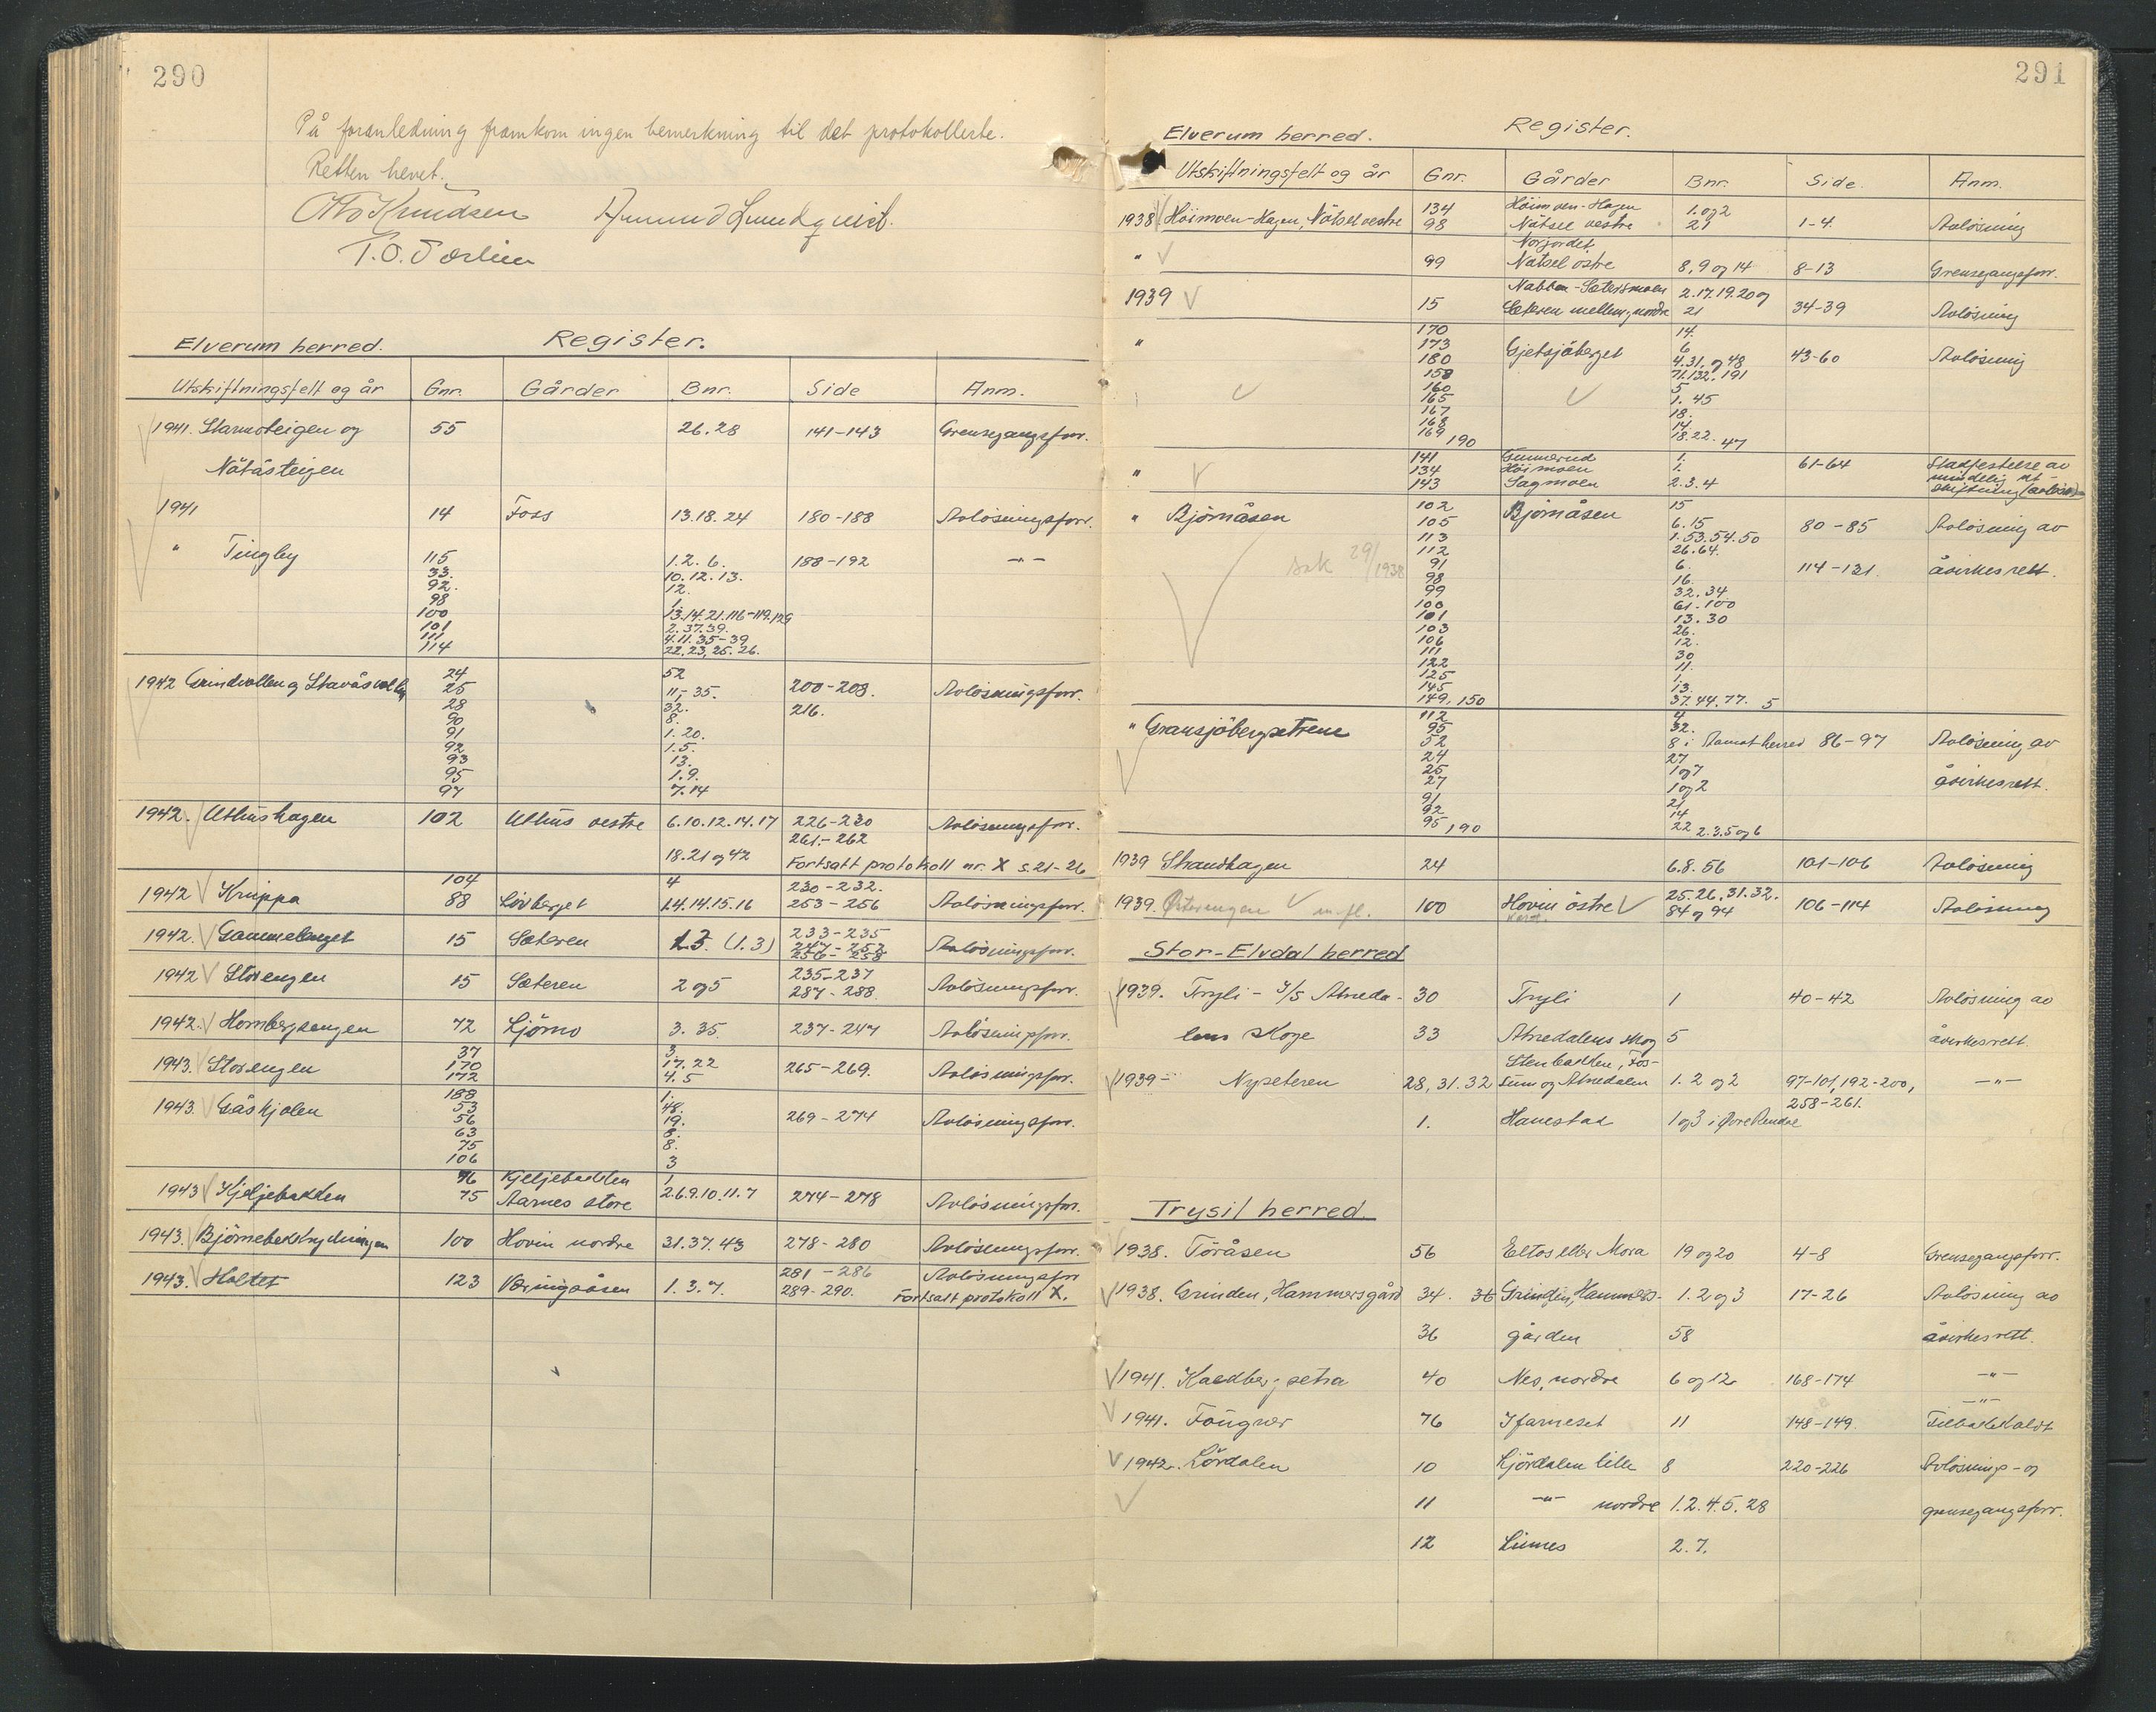 290
På foranledning framkom ingen bemerkning til det protokollerte.
Retten hevet.
Otto Knudsen Amund Lundquist.
T. O.
Elverum herred. Register.
Utskiftningsfelt og år Gnr. Gårder Bnr. Side Anm.
1941. Starmoteigen og 55 26.28 141-143 Grensegangsforr.
Nötåsteigen
1941 14 Foss 13.18.24 180-188 Avlösningsforr.
" Tingby 115 1.2.6. 188-192 -"-
33. 10.12.13.
92. 12.
98 1.
100 13.14.21.116-119.129
101 2.37.39.
111 4.11.35-39
114 22.23.25.26.
1942 Grindvollen og Stavåsvollen 24 52 200-208. Avlösningsforr.
25 11,-35. 216.
28 32.
90 8.
91 1.20.
92 1.5.
93 13.
95 1.9.
97 7.14
1942. Uthushagen 102 Uthus vestre 6.10.12.14.17 226-230 Avlösningsforr.
261-262
18.21 og 42 Fortsatt protokoll nr. X s.21-26
104 4 230-232.
1942 Kruppa 88 Lövberget 1.4.14.15.16 253-256 Avlösningsforr.
1942. Gammelenget 15 Sæteren 1.3. (1.3) 233-235 Avlösningsforr.
247-252
256-258
1942 Storengen 15 Sæteren 2 og 5 235-237 Avlösningsforr.
287-288
1942. Hornbergsengen 72 Ljömo 3.35. 237-247 Avlösningsforr.
37 3.
1943. Storengen 170 17.22 265-269. Avlösningsforr.
172 4.5
188 1.
1943. Gåskjolen 53 48. 269-274 Avlösningsforr.
56 19.
63 8.
75 8.
106 3
76 Kjeljebakken 1
1943 Kjeljebakken 75 Aarnes store 2.6.9.10.11.7 274-278 Avlösningsforr.
1943. Björnebekkrydningen 100 Hovin nordre 31.37.43 278-280 Avlösningsforr.
1943. Holtet 123 Væringsåsen 1.3.7. 281-286 Avlösningsforr
289-290. Fortsatt protokoll X.
291
Elverum herred. Register.
Utskiftningsfelt og år Gnr. Gårder Bnr. Side. Anm.
1938 Höimoen-Hagen, Nötsel vestre 134 Höimoen-Hagen 1. og 2 1-4. Avlösning
98 Nötsel vestre 21
Norjordet
" 99 Nötsel östre 8, 9 og 14 8-13 Grensegangsforr.
1939 Nabben-Sætersmoen 2.17.19.20 og
15 Sæteren mellem, nordre 21 34-39 Avlösning
170 14.
" 173 Gjetsjöberget 6 43-60 Avlösning
180 4.31. og 48
158 71.132.191
160 5
165 1. 45
167 18.
168 14.
169 190 18.22. 47
" 141 Gunnerud 1. 61-64 Stadfestelse av
134 Höimoen 1. mindelig ut-
143 Sagmoen 2.3.4 skiftning (avlösn)
" Björnåsen 102 Björnåsen 15
105 6.15 80-85 Avlösning av
113 1.53.54.50
112 26.64.
sak 29/1938 91 6. 114-131. åvirkesrett.
98 16.
99 32.34
100 61-100
101 13.30
103 26.
106 12.
111 30
122 11.
125 1.
145 13.
149, 150 37.44.77. 5
" Gransjöbergsetrene 112 4
95 32.
52 8 i Aamot herred 86-97 Avlösning av
24 27
25 1 og 7
27 1 og 2 åvirkesrett.
91 21
92 14
95, 190 22 2.3.5 og 6
1939 Strandhagen 24 6.8.56 101-106 Avlösning
1939. Østerengen m.fl. 100 Hovin östre 25.26.31.32. 106-114 Avlösning
84 og 94
Stor-Elvdal herred
1939. Tryli - I/S Atneda- 30 Tryli 1 40-42 Avlösning av
lens skoge 33 Atnedalens skog 5 åvirkesrett
Stenbakken, Fos-
1939- Nyseteren 28, 31. 32 sum og Atnedalen 1. 2 og 2 97-101, 192-200, -"-
258-261.
1. Hanestad 1 og 3 i Øvre Rendal
Trysil herred.
1938. Töråsen 56 Eltos eller Mora 19 og 20 4-8 Grensegangsforr.
1938. Grinden, Hammersgård 34. 36 Grinden, Hammers- 1. 2 og 3 17-26 Avlösning av
36 gården 58 åvirkesrett.
1941. Kaldbergsetra 40 Nes, nordre 6 og 12 168-174 -"-
-"-
1941. Föugner 76 11 148-149. Tilbakekaldt
1942. Lördalen 10 Ljördalen lille 8 220-226 Avlösnings- og
11 -"- nordre 1.2.4.5.28 grensegangsforr.
12 Linnes 2.7.